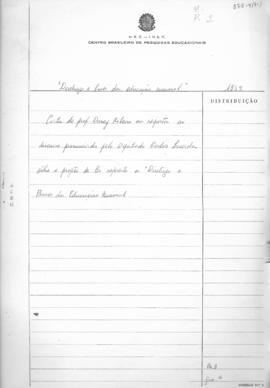 M.E.C. - I.N.E.P.
CENTRO BRASILEIRO DE PESQUISAS EDUCACIONAIS
"Diretrizes e bases da educação nacional"
1959
DISTRIBUIÇÃO
Carta do prof. Darcy Ribeiro em resposta ao
discurso pronunciado pelo deputado Carlos Lacerda
sôbre o projeto de lei referente a "Diretrizes e
Bases da Educação Nacional